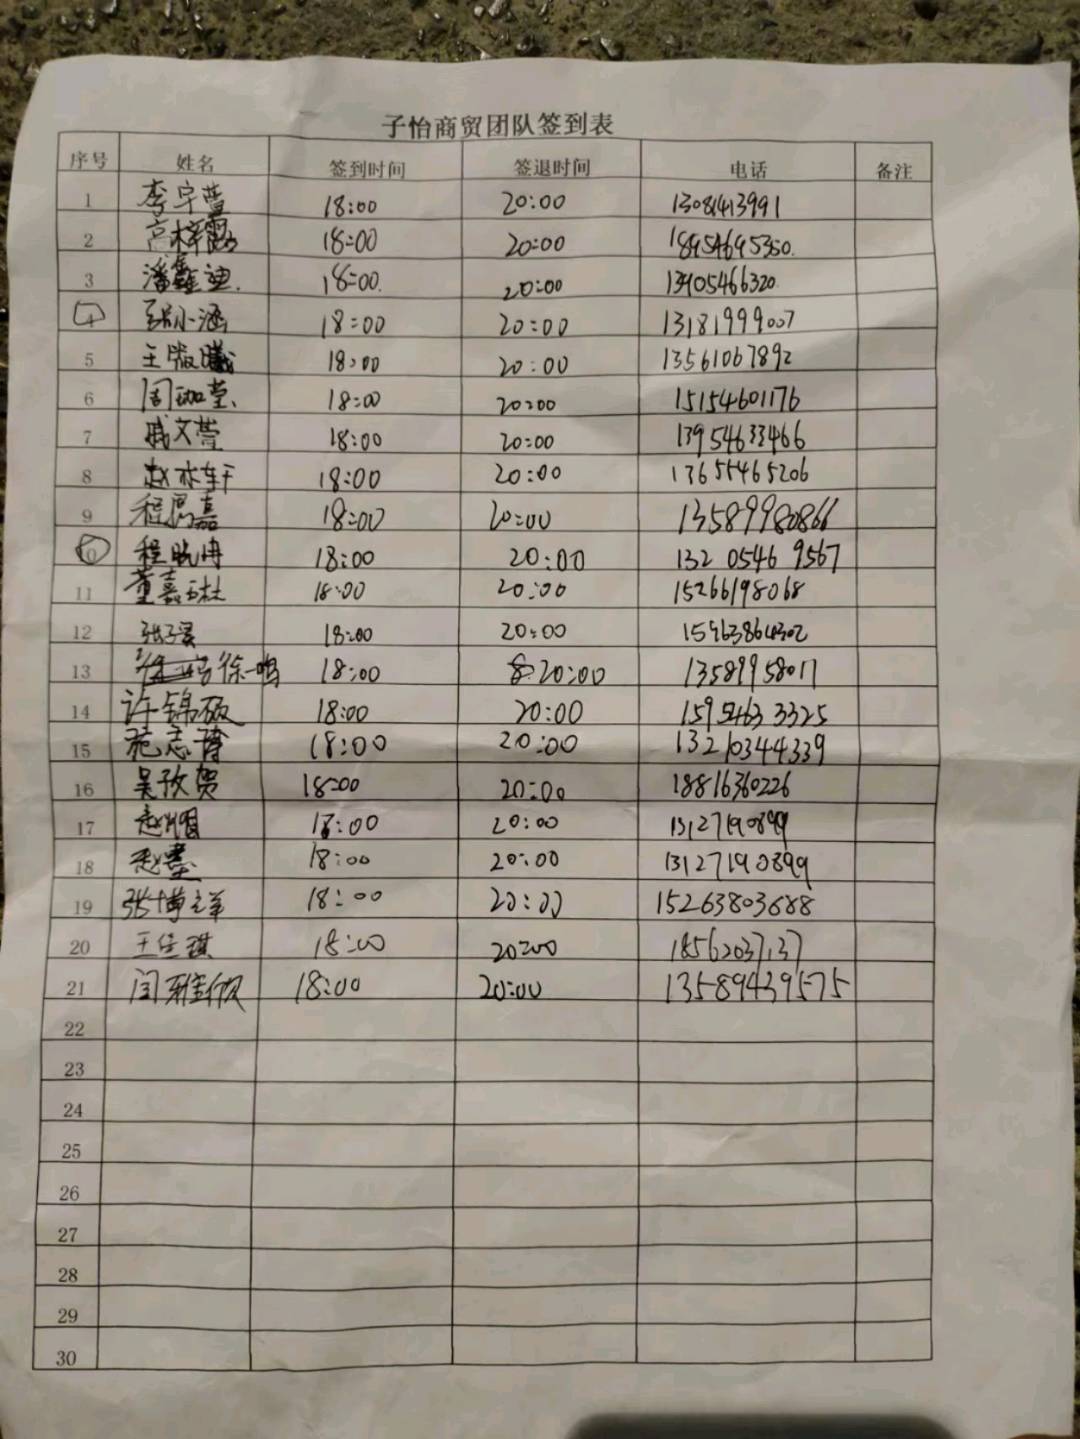 子怡商贸团队签到表
序号 姓名 签到时间 签退时间 电话 备注
1 李宇萱 18:00 20:00 13081413991
2 高梓露 18:00 20:00 18954695350
3 潘鑫迪 18:00 20:00 13905466320
4 小涵 18:00 20:00 13181999007
5 王 18:00 20:00 13561067892
6 周珈莹 18:00 20:00 15154601176
7 戚文萱 18:00 20:00 13954633466
8 赵亦轩 18:00 20:00 13655465206
9 程禹嘉 18:00 20:00 13589980866
10 程晓冉 18:00 20:00 132 0546 9567
11 董嘉 18:00 20:00 15266198068
12 张子 18:00 20:00 15963864302
13 徐一鸣 18:00 20:00 13589958017
14 许锦硕 18:00 20:00 1595463 3325
15 志 18:00 20:00 13210344339
16 吴孜贺 18:00 20:00 18816360226
17 赵 18:00 20:00 13127190899
18 赵 18:00 20:00 13127190899
19 张博 18:00 20:00 15263803688
20 王佳琪 18:00 20:00 18562037137
21 闫雅 18:00 20:00 13589439575
22
23
24
25
26
27
28
29
30